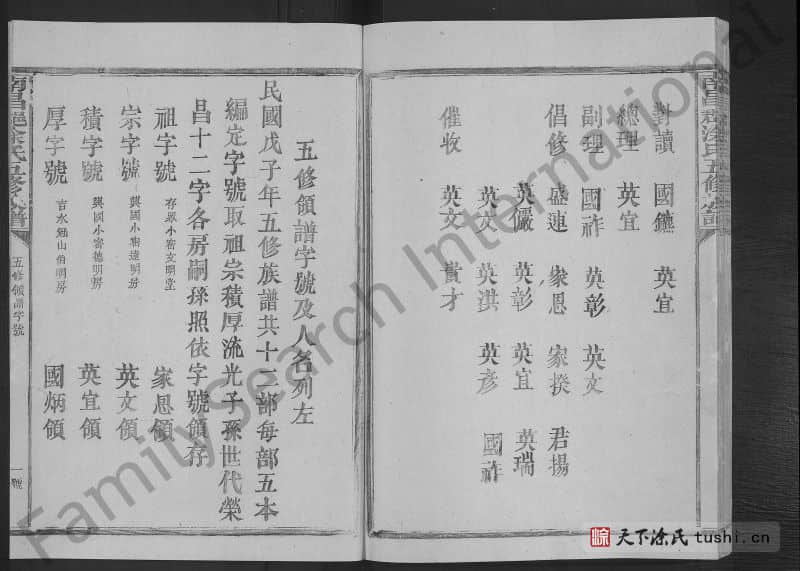 對讀 國鑣 英宜
總理 英宜
副理 國祚 英彰 英文
倡修 盛連 家恩 家揆 君揚
英儼 英彰 英宜 英瑞
英文 英洪 英彥 國祚
催收 英文 貴才
五修領譜字號及人名列左
民國戊子年五修族譜共十二部每部五本
編定字號取祖宗積厚流光子孫世代榮
昌十二字各房嗣孫照依字號領存
祖字號 存畢小密文明堂 家恩領
宗字號 興國小密達明房 英文領
積字號 興國小密德明房 英宜領
厚字號 吉水山伯明房 國炳領
五修領譜字號
一號
FamilySearch International
天下涂氏 tushi.cn